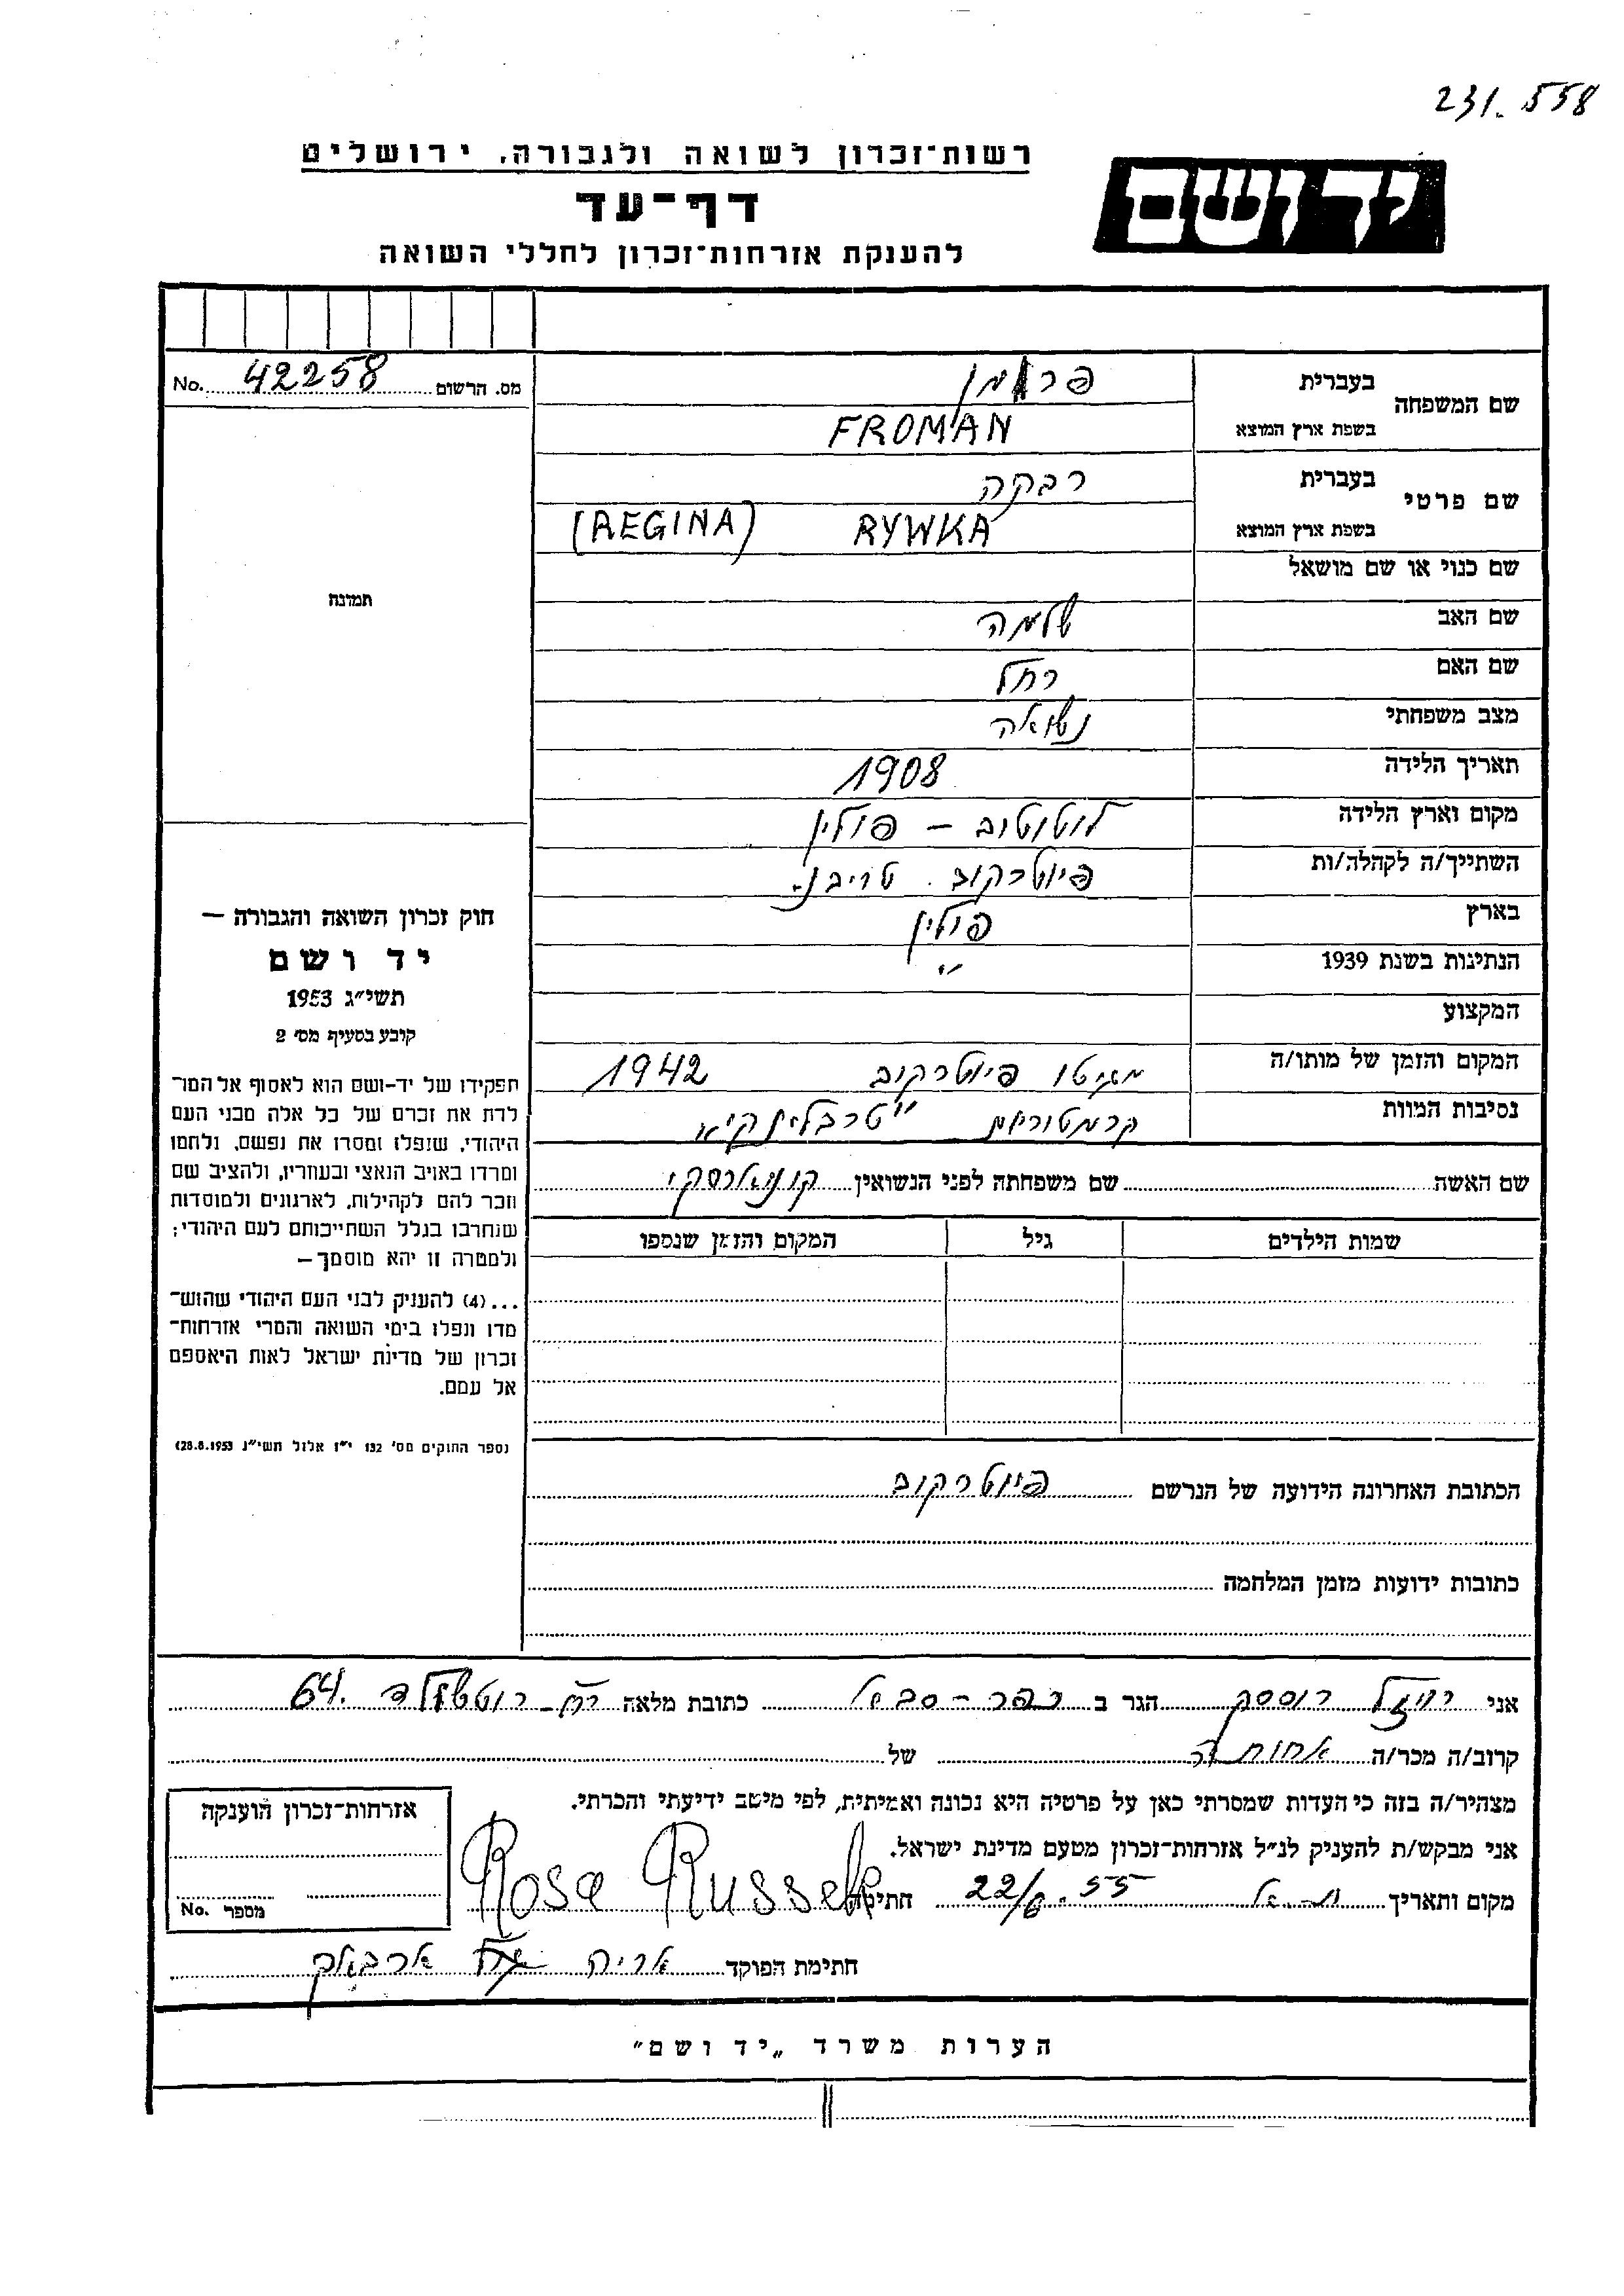 231.558
רשות־זכרון לשואה ולגבורה, ירושלים
יד ושם
דף־עד
להענקת אזרחות־זכרון לחללי השואה
שם המשפחה
בעברית פרומן
בשפת ארץ המוצא FROMAN
שם פרטי
בעברית רבקה
בשפת ארץ המוצא RYWKA (REGINA)
שם כנוי או שם מושאל
שם האב שלמה
שם האם רחל
מצב משפחתי נשואה
תאריך הלידה 1908
מקום וארץ הלידה לוטוטוב – פולין
השתייך/ה לקהלה/ות פיוטרקוב. טריבנ.
בארץ פולין
הנתינות בשנת 1939 "
המקצוע
המקום והזמן של מותו/ה מגיטו פיוטרקוב 1942
נסיבות המוות קרמטוריום "טרבלינקי"
שם האשה שם משפחתה לפני הנשואין
שמות הילדים גיל המקום והזמן שנספו
הכתובת האחרונה הידועה של הנרשם פיוטרקוב
כתובות ידועות מזמן המלחמה
מס. הרשום 42258 No.
תמונה
חוק זכרון השואה והגבורה –
יד ושם
תשי״ג 1953
קובע בסעיף מס׳ 2
תפקידו של יד-ושם הוא לאסוף אל המו־
לדת את זכרם של כל אלה מבני העם
היהודי, שנפלו ומסרו את נפשם, נלחמו
ומרדו באויב הנאצי ובעוזריו, ולהציב שם
וזכר להם לקהילות, לארגונים ולמוסדות
שנחרבו בגלל השתייכותם לעם היהודי;
ולמטרה זו יהא מוסמך –
...(4) להעניק לבני העם היהודי שהוש־
מדו ונפלו בימי השואה והמרי אזרחות־
זכרון של מדינת ישראל לאות היאספם
אל עמם.
(ספר החוקים מס׳ 132 י״ז אלול תשי״ג 28.8.1953)
אני רוסק הגר ב כפר-סבא כתובת מלאה רח- רוטשילד 64.
קרוב/ה מכר/ה אחותה של
מצהיר/ה בזה כי העדות שמסרתי כאן על פרטיה היא נכונה ואמיתית, לפי מיטב ידיעתי והכרתי.
אני מבקש/ת להעניק לנ״ל אזרחות־זכרון מטעם מדינת ישראל.
מקום ותאריך 22/6.55 חתימה Rosa Russek
חתימת הפוקד אריה ארבאלק
אזרחות־זכרון הוענקה
מספר No.
הערות משרד „יד ושם"